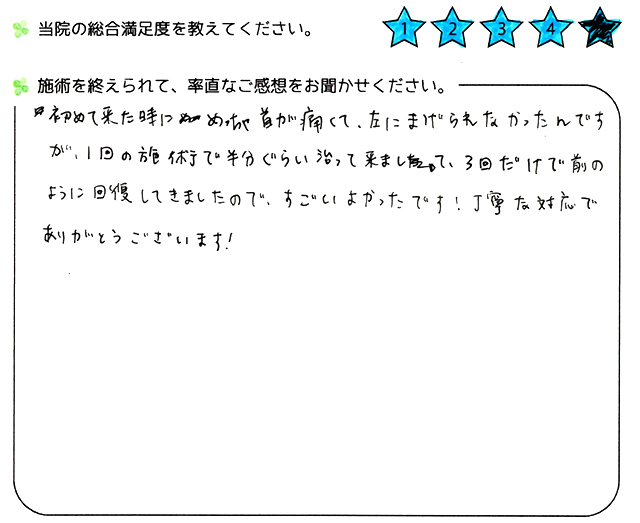 当院の総合満足度を教えてください。 1 2 3 4
施術を終えられて、率直なご感想をお聞かせください。
初めて来た時に めっちゃ首が痛くて、左にまげられなかったんです
が、1回の施術で半分ぐらい治って来まして、3回だけで前の
ように回復してきましたので、すごいよかったです！丁寧な対応で
ありがとうございます！